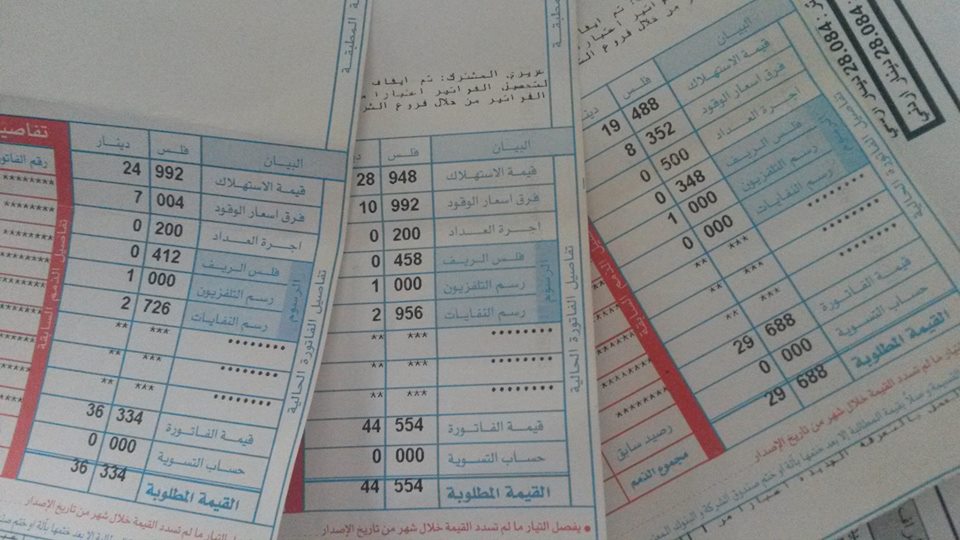 تفاصيل
رقم الفاتورة
تفاصيل الذمم السابقة
البيان فلس دينار
قيمة الاستهلاك 992 24
فرق اسعار الوقود 004 7
اجرة العداد 200 0
الرسوم
فلس الريف 412 0
رسم التلفزيون 000 1
رسم النفايات 726 2
******** *** **
******** *** **
******** *** **
قيمة الفاتورة 334 36
حساب التسوية 000 0
القيمة المطلوبة 334 36
تفاصيل الفاتورة الحالية
يفصل التيار ما لم تسدد القيمة خلال شهر من تاريخ الإصدار
المطبقة
عزيزي المشترك: تم ايقاف
لتحصيل الفواتير اعتبارا م
الفواتير من خلال فروع الشر
البيان فلس دينار
قيمة الاستهلاك 948 28
فرق اسعار الوقود 992 10
اجرة العداد 200 0
الرسوم
فلس الريف 458 0
رسم التلفزيون 000 1
رسم النفايات 956 2
******** *** **
******** *** **
******** *** **
قيمة الفاتورة 554 44
حساب التسوية 000 0
القيمة المطلوبة 554 44
تفاصيل الفاتورة الحالية
يفصل التيار ما لم تسدد القيمة خلال شهر من تاريخ الإصدار
المطبقة
من خلال فروع الشر
البيان فلس دينار
قيمة الاستهلاك 488 19
فرق اسعار الوقود 352 8
اجرة العداد 500 0
الرسوم
فلس الريف 348 0
رسم التلفزيون 000 1
رسم النفايات 000 0
******** *** **
******** *** **
قيمة الفاتورة 688 29
حساب التسوية 000 0
القيمة المطلوبة 688 29
تفاصيل الفاتورة الحالية
تفاصيل الذمم السابقة
رصيد سابق
مجموع الذمم
التيار ما لم تسدد القيمة خلال شهر من تاريخ الإصدار
28.084 دينار اردني
28.084